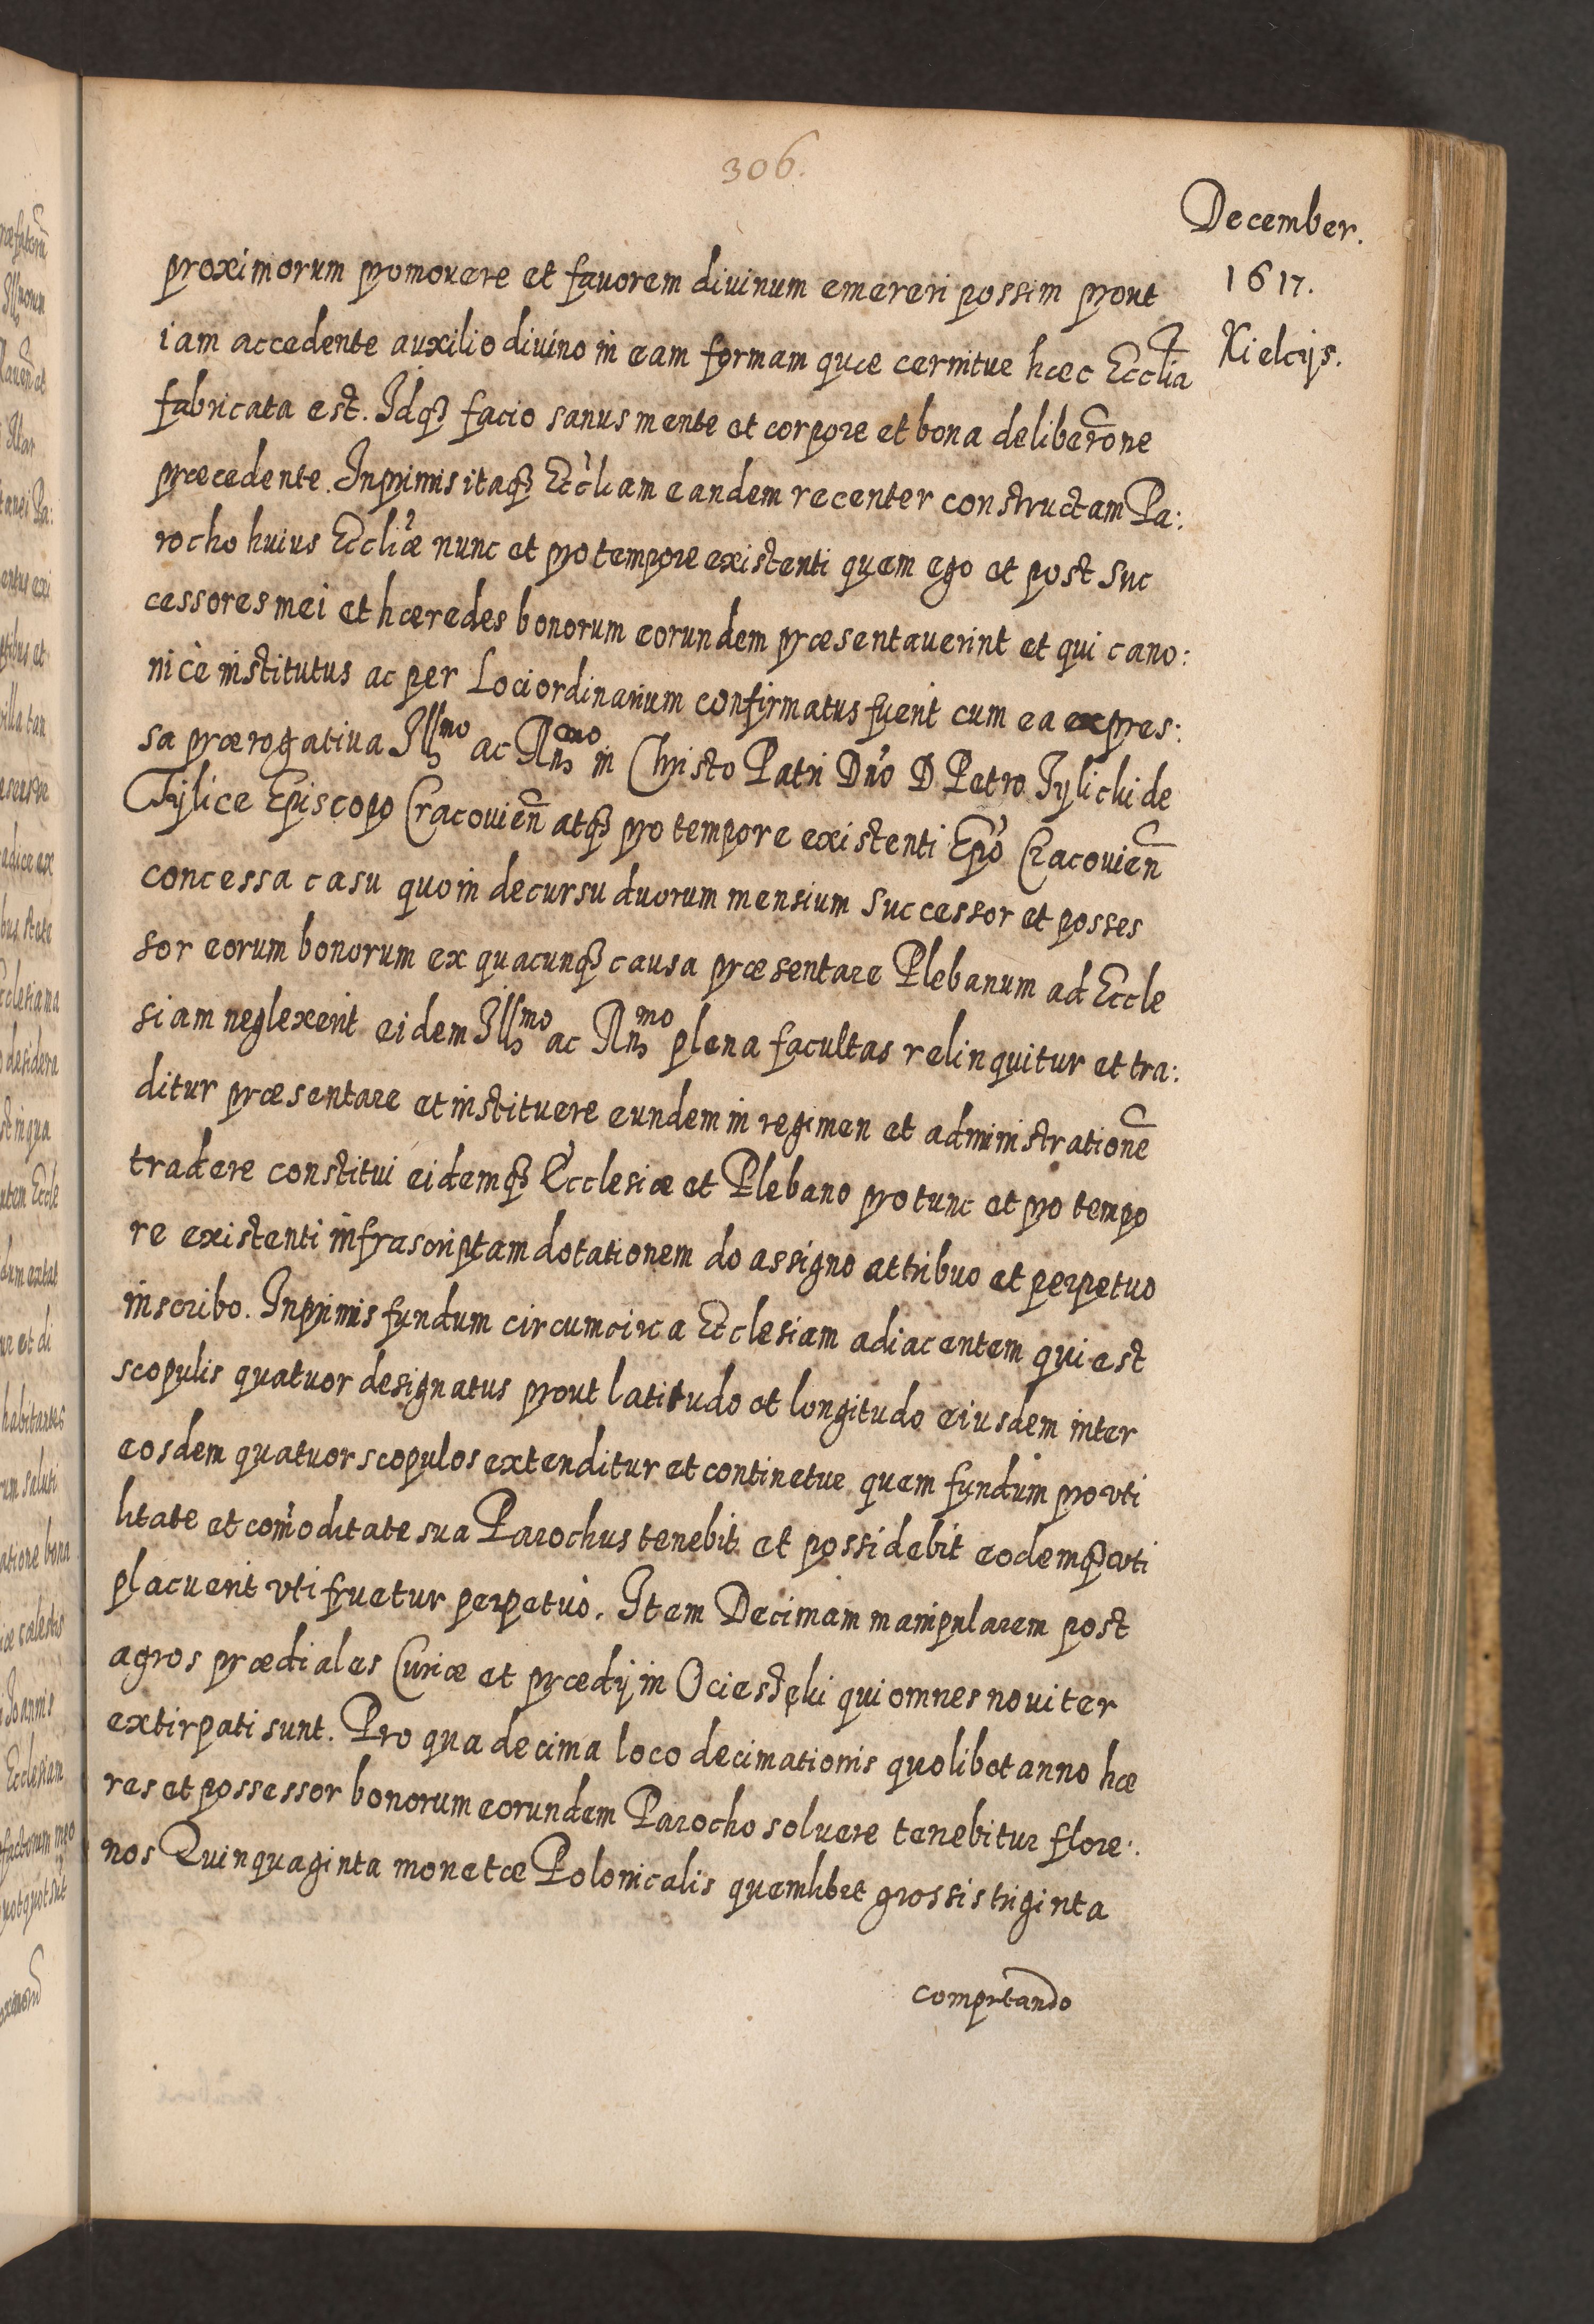 306.
December.
1617.
Kielcijs.
proximorum promouere et fauorem diuinum emereri possim prout
iam accedente auxilio diuino in eam formam quæ cernitur hæc Ecclia
fabricata est. Idq₃ facio sanus mente et corpore et bona deliberone
præcedente. Inprimis itaq₃ Eccliam eandem recenter constructam Pa:
rocho huius Eccliæ nunc et pro tempore existenti quem ego et post suc
cessores mei et hæredes bonorum eorundem præsentauerint et qui cano:
nicè institutus ac per Loci ordinarium confirmatus fuerit cum ea expres:
sa prærogatiua Illmo ac Rnmo in Christo Patri Dno D Petro Tylicki de
Tylice Episcopo Cracouien atq₃ pro tempore existenti Epo Cracouien
concessa casu quo in decursu duorum mensium Successor et posses
sor eorum bonorum ex quacunq₃ causa præsentare Plebanum ad Eccle
siam neglexerit eidem Illmo ac Rnmo plena facultas relinquitur et tra:
ditur præsentare et instituere eundem in regimen et administratione
tradere constitui eidemq₃ Ecclesiæ et Plebano pro tunc et pro tempo
re existenti infrascriptam dotationem do assigno attribuo et perpetuo
inscribo. Inprimis fundum circumcirca Ecclesiam adiacentem qui est
scopulis quatuor designatus prout latitudo et longitudo eiusdem inter
eosdem quatuor scopulos extenditur et continetur quem fundum pro vti
litate et comoditate sua Parochus tenebit et possidebit eodemq₃ vti
placuerit vti fruetur perpetuò. Item Decimam manipularem post
agros prædiales Curiæ et prædij in Ociestęki qui omnes nouiter
extirpati sunt. Pro qua decima loco decimationis quolibet anno hæ
res et possessor bonorum eorundem Parocho soluere tenebitur flore:
nos Quinquaginta monetæ Polonicalis quemlibet grossis triginta
computando